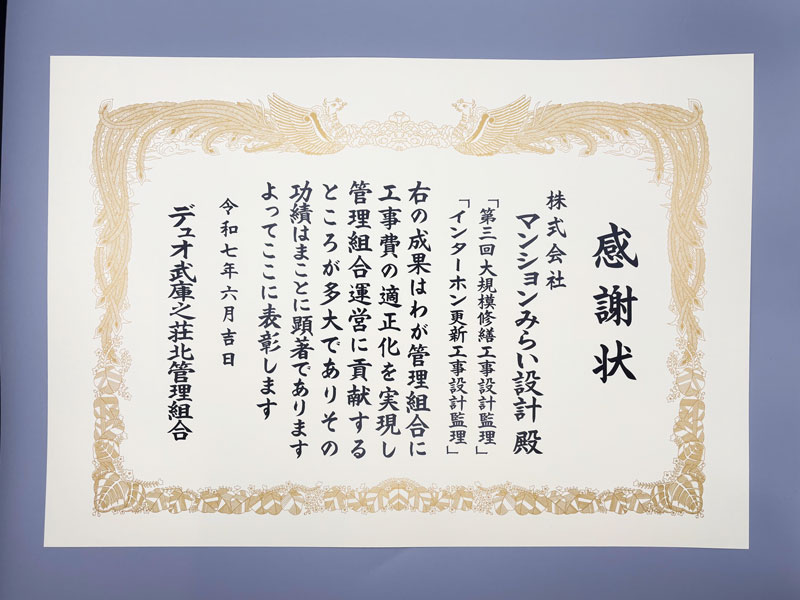 感謝状
株式会社
マンションみらい設計 殿
「第三回大規模修繕工事設計監理」
「インターホン更新工事設計監理」
右の成果はわが管理組合に
工事費の適正化を実現し
管理組合運営に貢献する
ところが多大でありその
功績はまことに顕著であります
よってここに表彰します
令和七年六月吉日
デュオ武庫之荘北管理組合